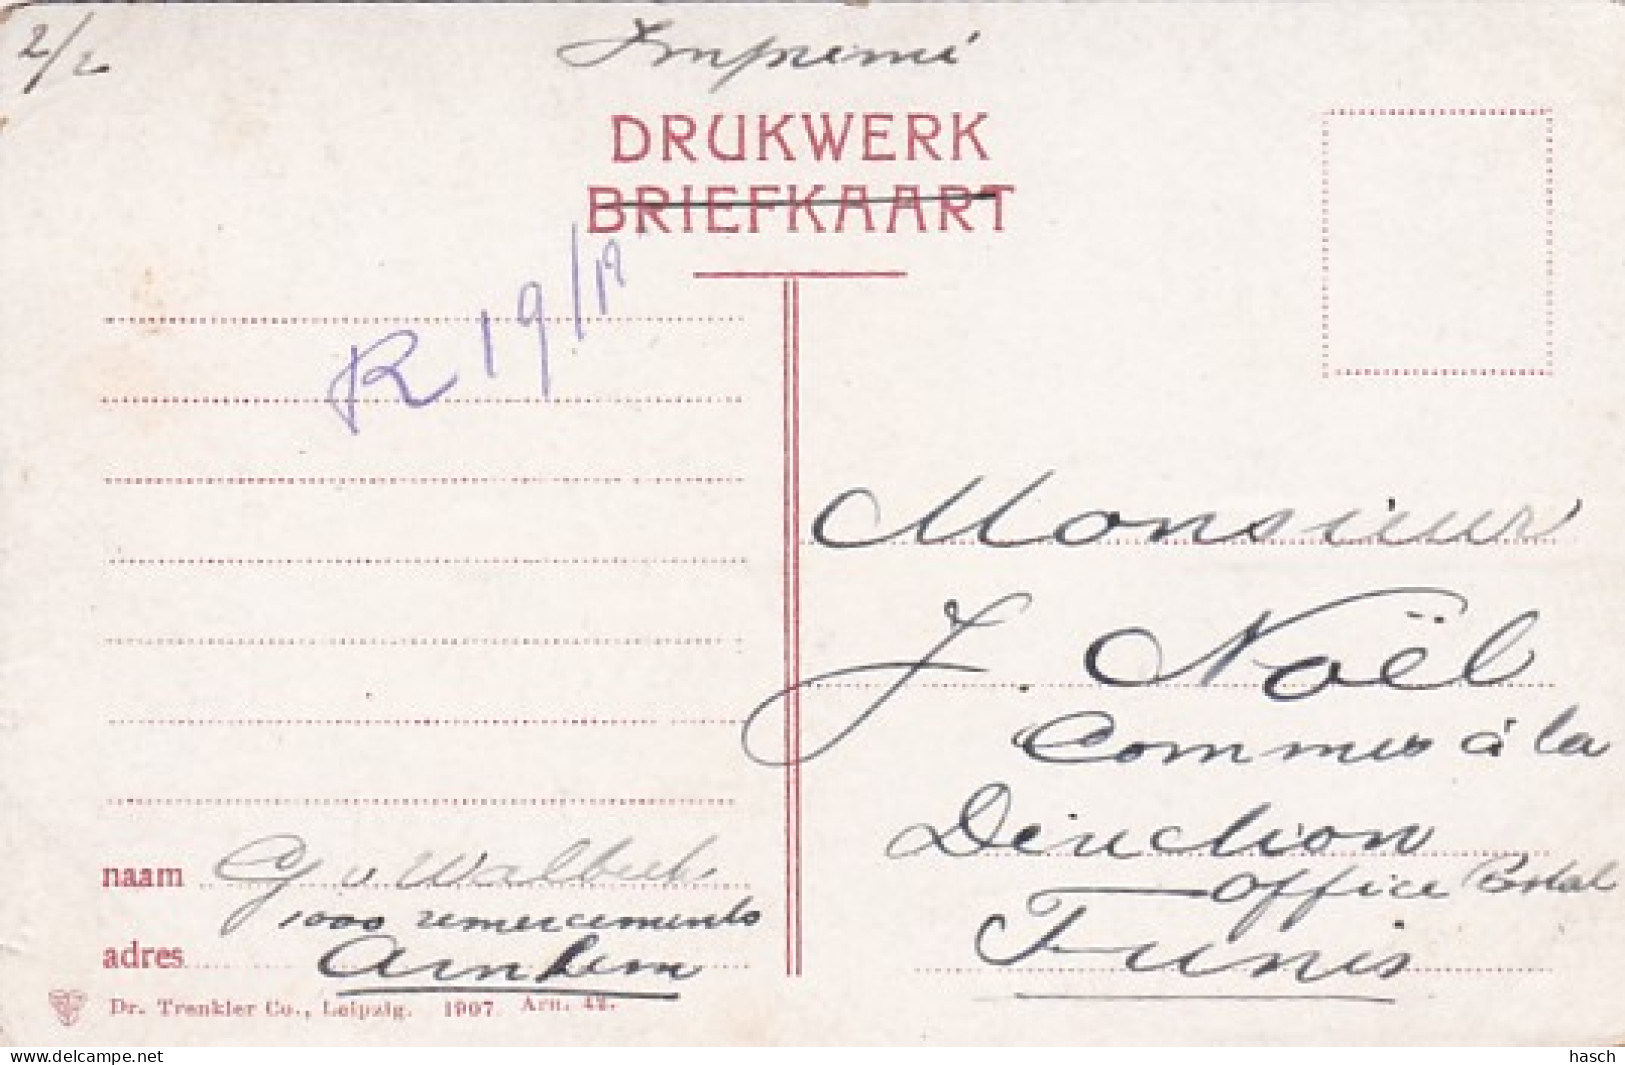 2/2
Imprimé
DRUKWERK
BRIEFKAART
R 19/
Monsieur
J. Noël
Commis à la
Direction
Office Postal
Tunis
naam G v Walbeek
1000 remerciements
adres Arnhem
Dr. Trenkler Co., Leipzig. 1907 Arn. 42.
www.delcampe.net
hasch